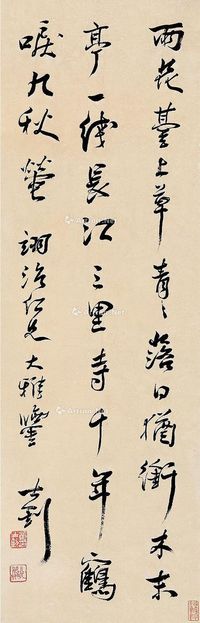 雨花臺上草青〻落日猶銜木末
亭一綫長江三里寺千年鶴
唳九秋螢 翊治仁兄大雅鑒 世釗